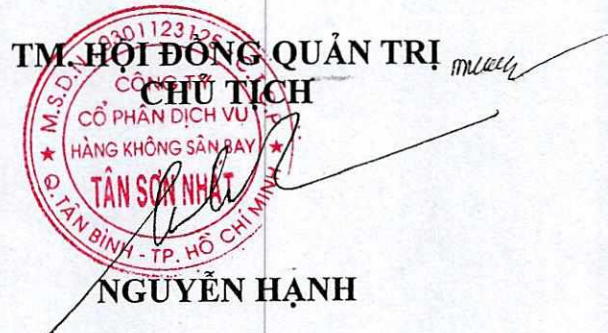 TM. HỘI ĐỒNG QUẢN TRỊ
CHỦ TỊCH
CÔNG TY
CỔ PHẦN DỊCH VỤ
HÀNG KHÔNG SÂN BAY
TÂN SƠN NHẤT
Q.TÂN BÌNH - TP. HỒ CHÍ MINH
NGUYỄN HẠNH